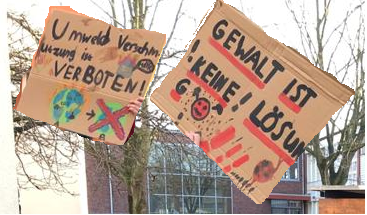 Umweld Verschm
utzung ist
VERBOTEN!
GEWALT IST
! KEINE!
LÖSUN
G
!!!